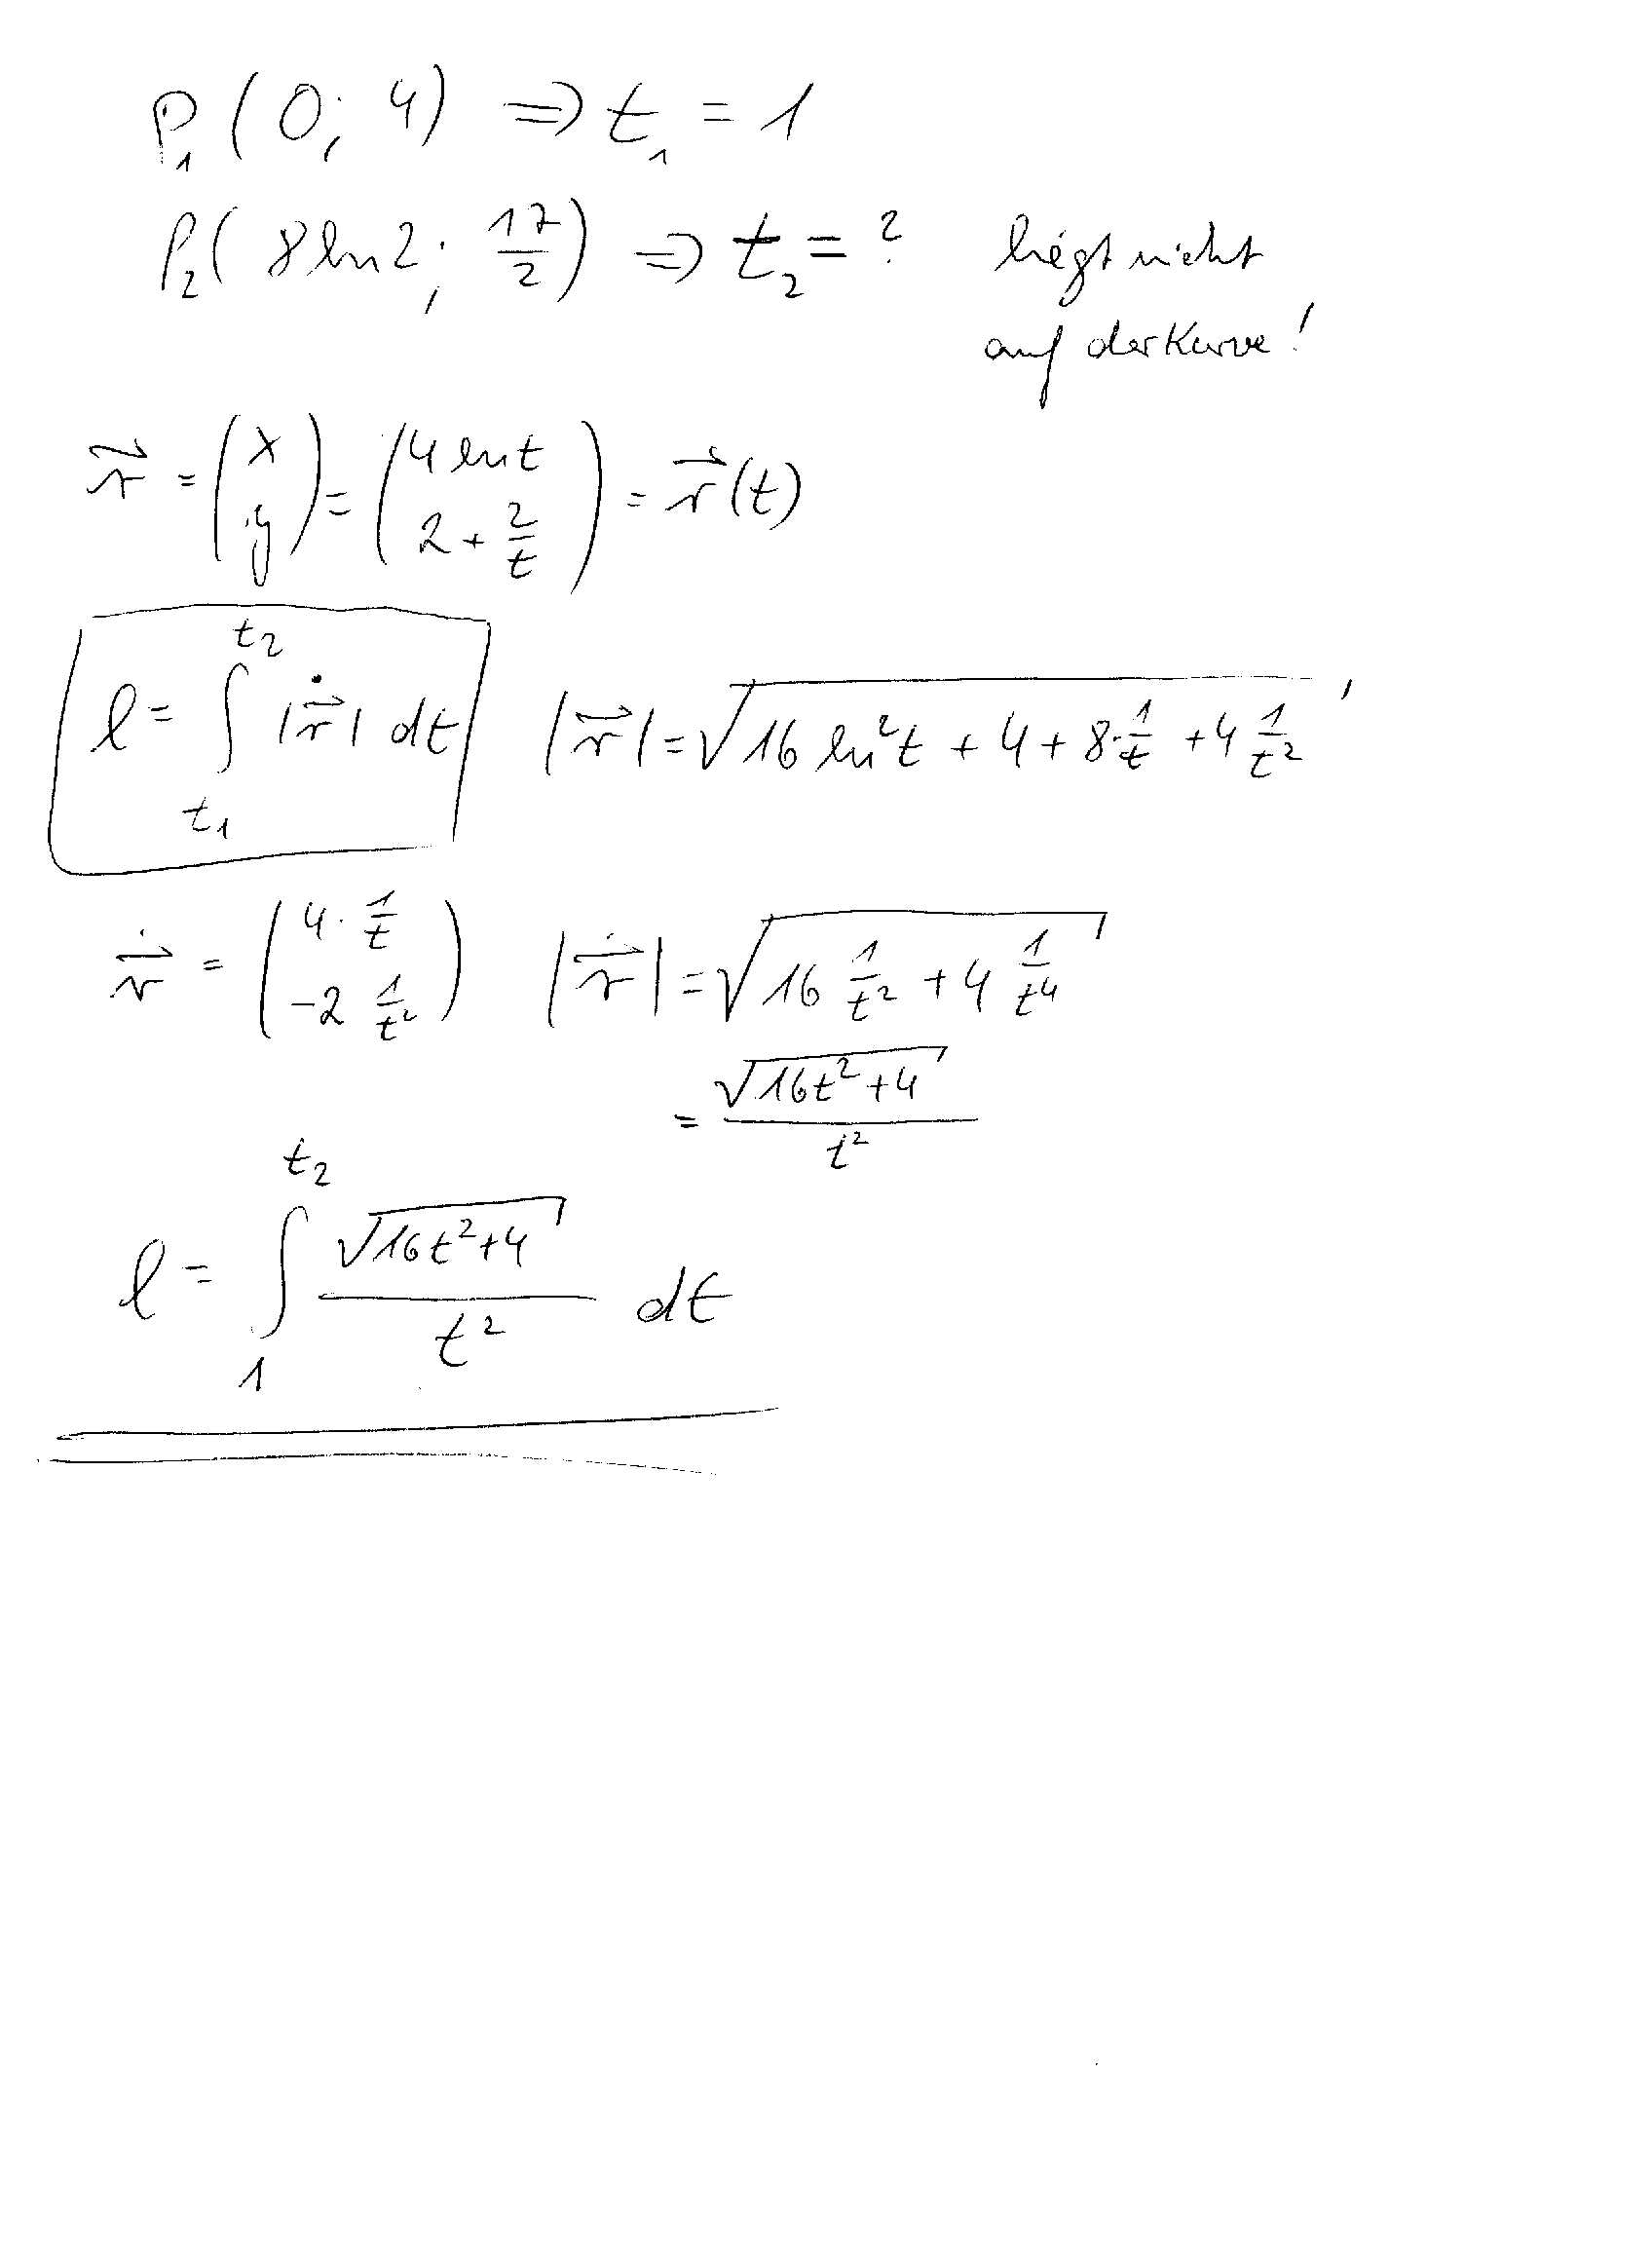 P₁ ( 0; 4) ⇒ t₁ = 1
P₂( 8 ln 2; 17/2 ) ⇒ t₂ = ? liegt nicht
auf der Kurve!
r⃗ = (x y) = (4 ln t 2 + 2/t) = r⃗(t)
l = ∫_{t₁}^{t₂} |r⃗̇| dt |r⃗| = √(16 ln²t + 4 + 8·1/t + 4 1/t²)
r⃗̇ = (4 · 1/t −2 1/t²) |r⃗̇| = √(16 1/t² + 4 1/t⁴)
= √(16t²+4) / t²
l = ∫_{1}^{t₂} √(16t²+4) / t² dt